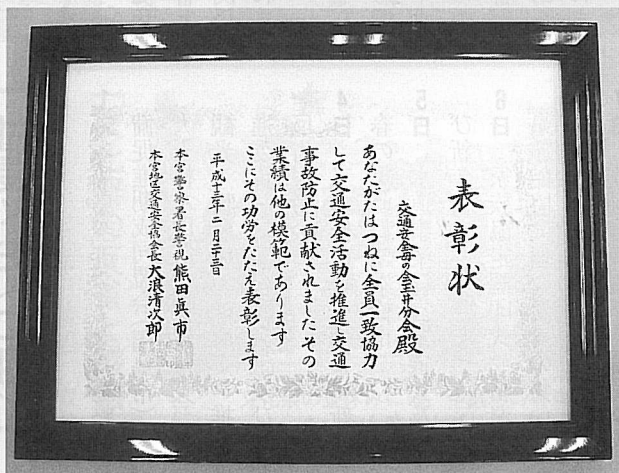 表彰状
交通安全母の会玉井分会殿
あなたがたはつねに全員一致協力
して交通安全活動を推進し交通
事故防止に貢献されましたその
業績は他の模範であります
ここにその功労をたたえ表彰します
平成十三年二月二十三日
本宮警察署長警視熊田眞市
本宮地区交通安全協会長大浪清次郎